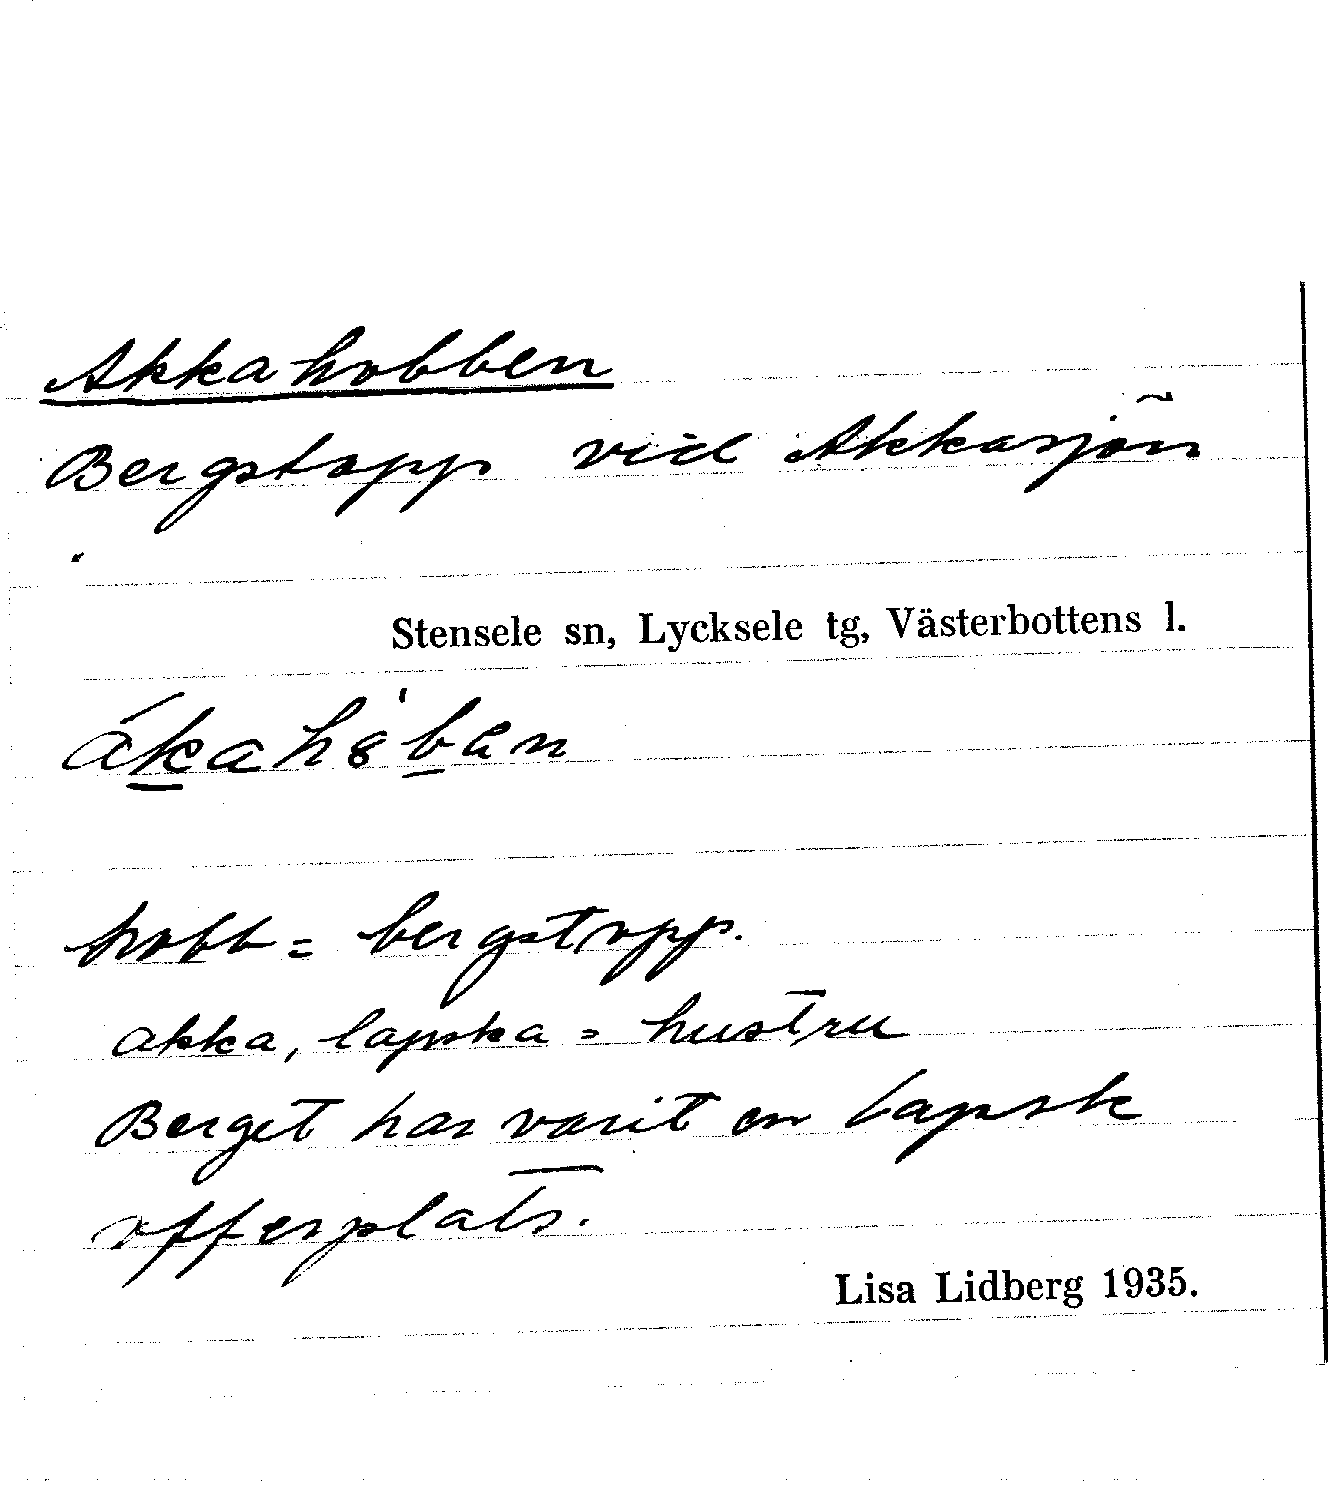 Akkahobben
Bergstopp vid Akkasjön
Stensele sn, Lycksele tg, Västerbottens l.
hobb = bergstopp.
akka, lapska = hustru
Berget har varit en lapsk
offerplats.
Lisa Lidberg 1935.